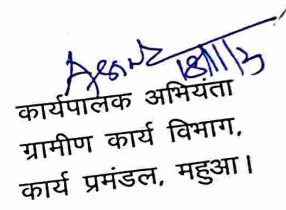 18/11/13
कार्यपालक अभियंता
ग्रामीण कार्य विभाग,
कार्य प्रमंडल, महुआ।